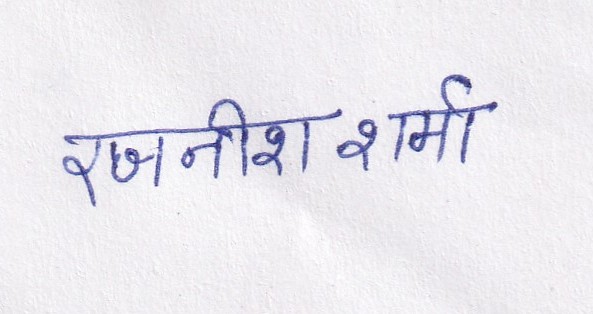 रजनीश शर्मा